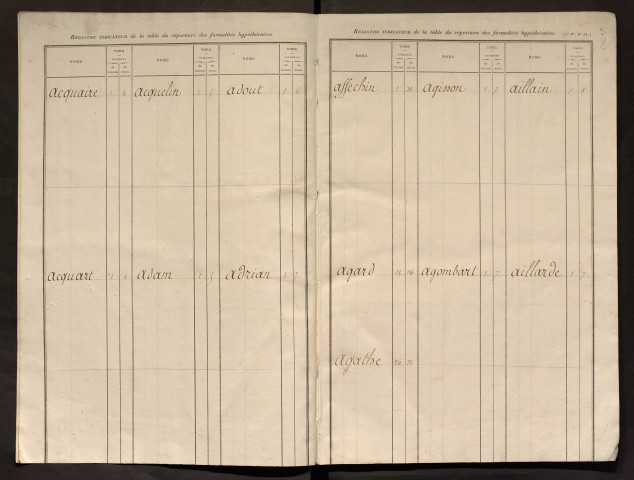 REGISTRE INDICATEUR de la table du répertoire des formalités hypothécaires.
NOMS. TABLE. NOMS. TABLE. NOMS. TABLE.
Acquaire 1 4 Acquelin 1 5 Adout 1 6
Acquart 1 4 Adam 1 5 Adrian 1 7
REGISTRE INDICATEUR de la table du répertoire des formalités hypothécaires.
NOMS. TABLE. NOMS. TABLE. NOMS. TABLE.
Affechin 1 Agisson 1 7 Aillain 1 8
Agard Agombart 1 7 Aillarde 1 7
Agathe